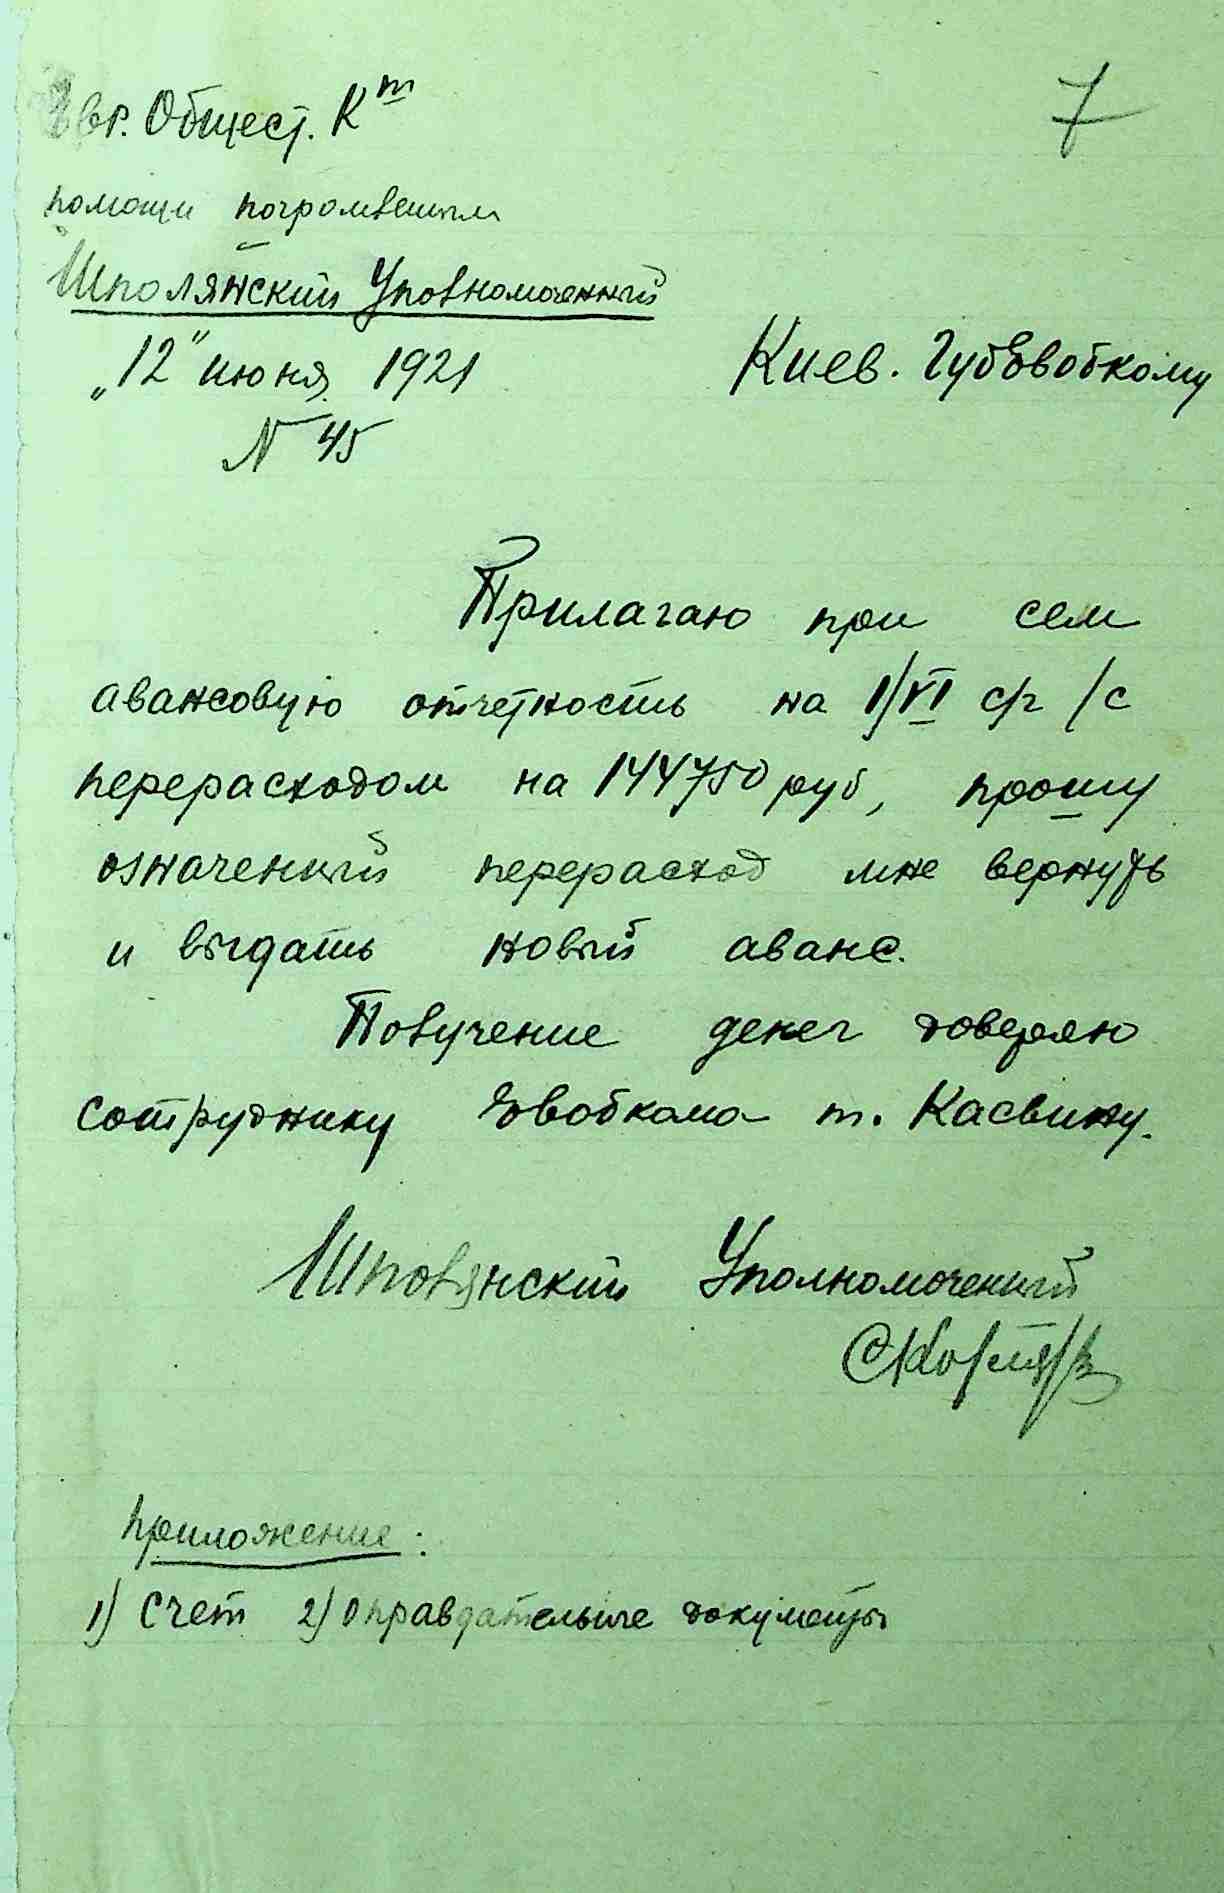 Евр. Общест. Кт
7
помощи погромленным
Шполянский Уполномоченный
„12" июня 1921
Киев. ГубЕвобкому
N 45
Прилагаю при сем
авансовую отчетность на 1/VI с/г /с
перерасходом на 144750 руб, прошу
означенный перерасход мне вернуть
и выдать новый аванс.
Получение денег доверяю
сотруднику Евобкома т. Касвину.
Шполянский Уполномоченный
Приложение:
1) Счет 2) Оправдательные документы